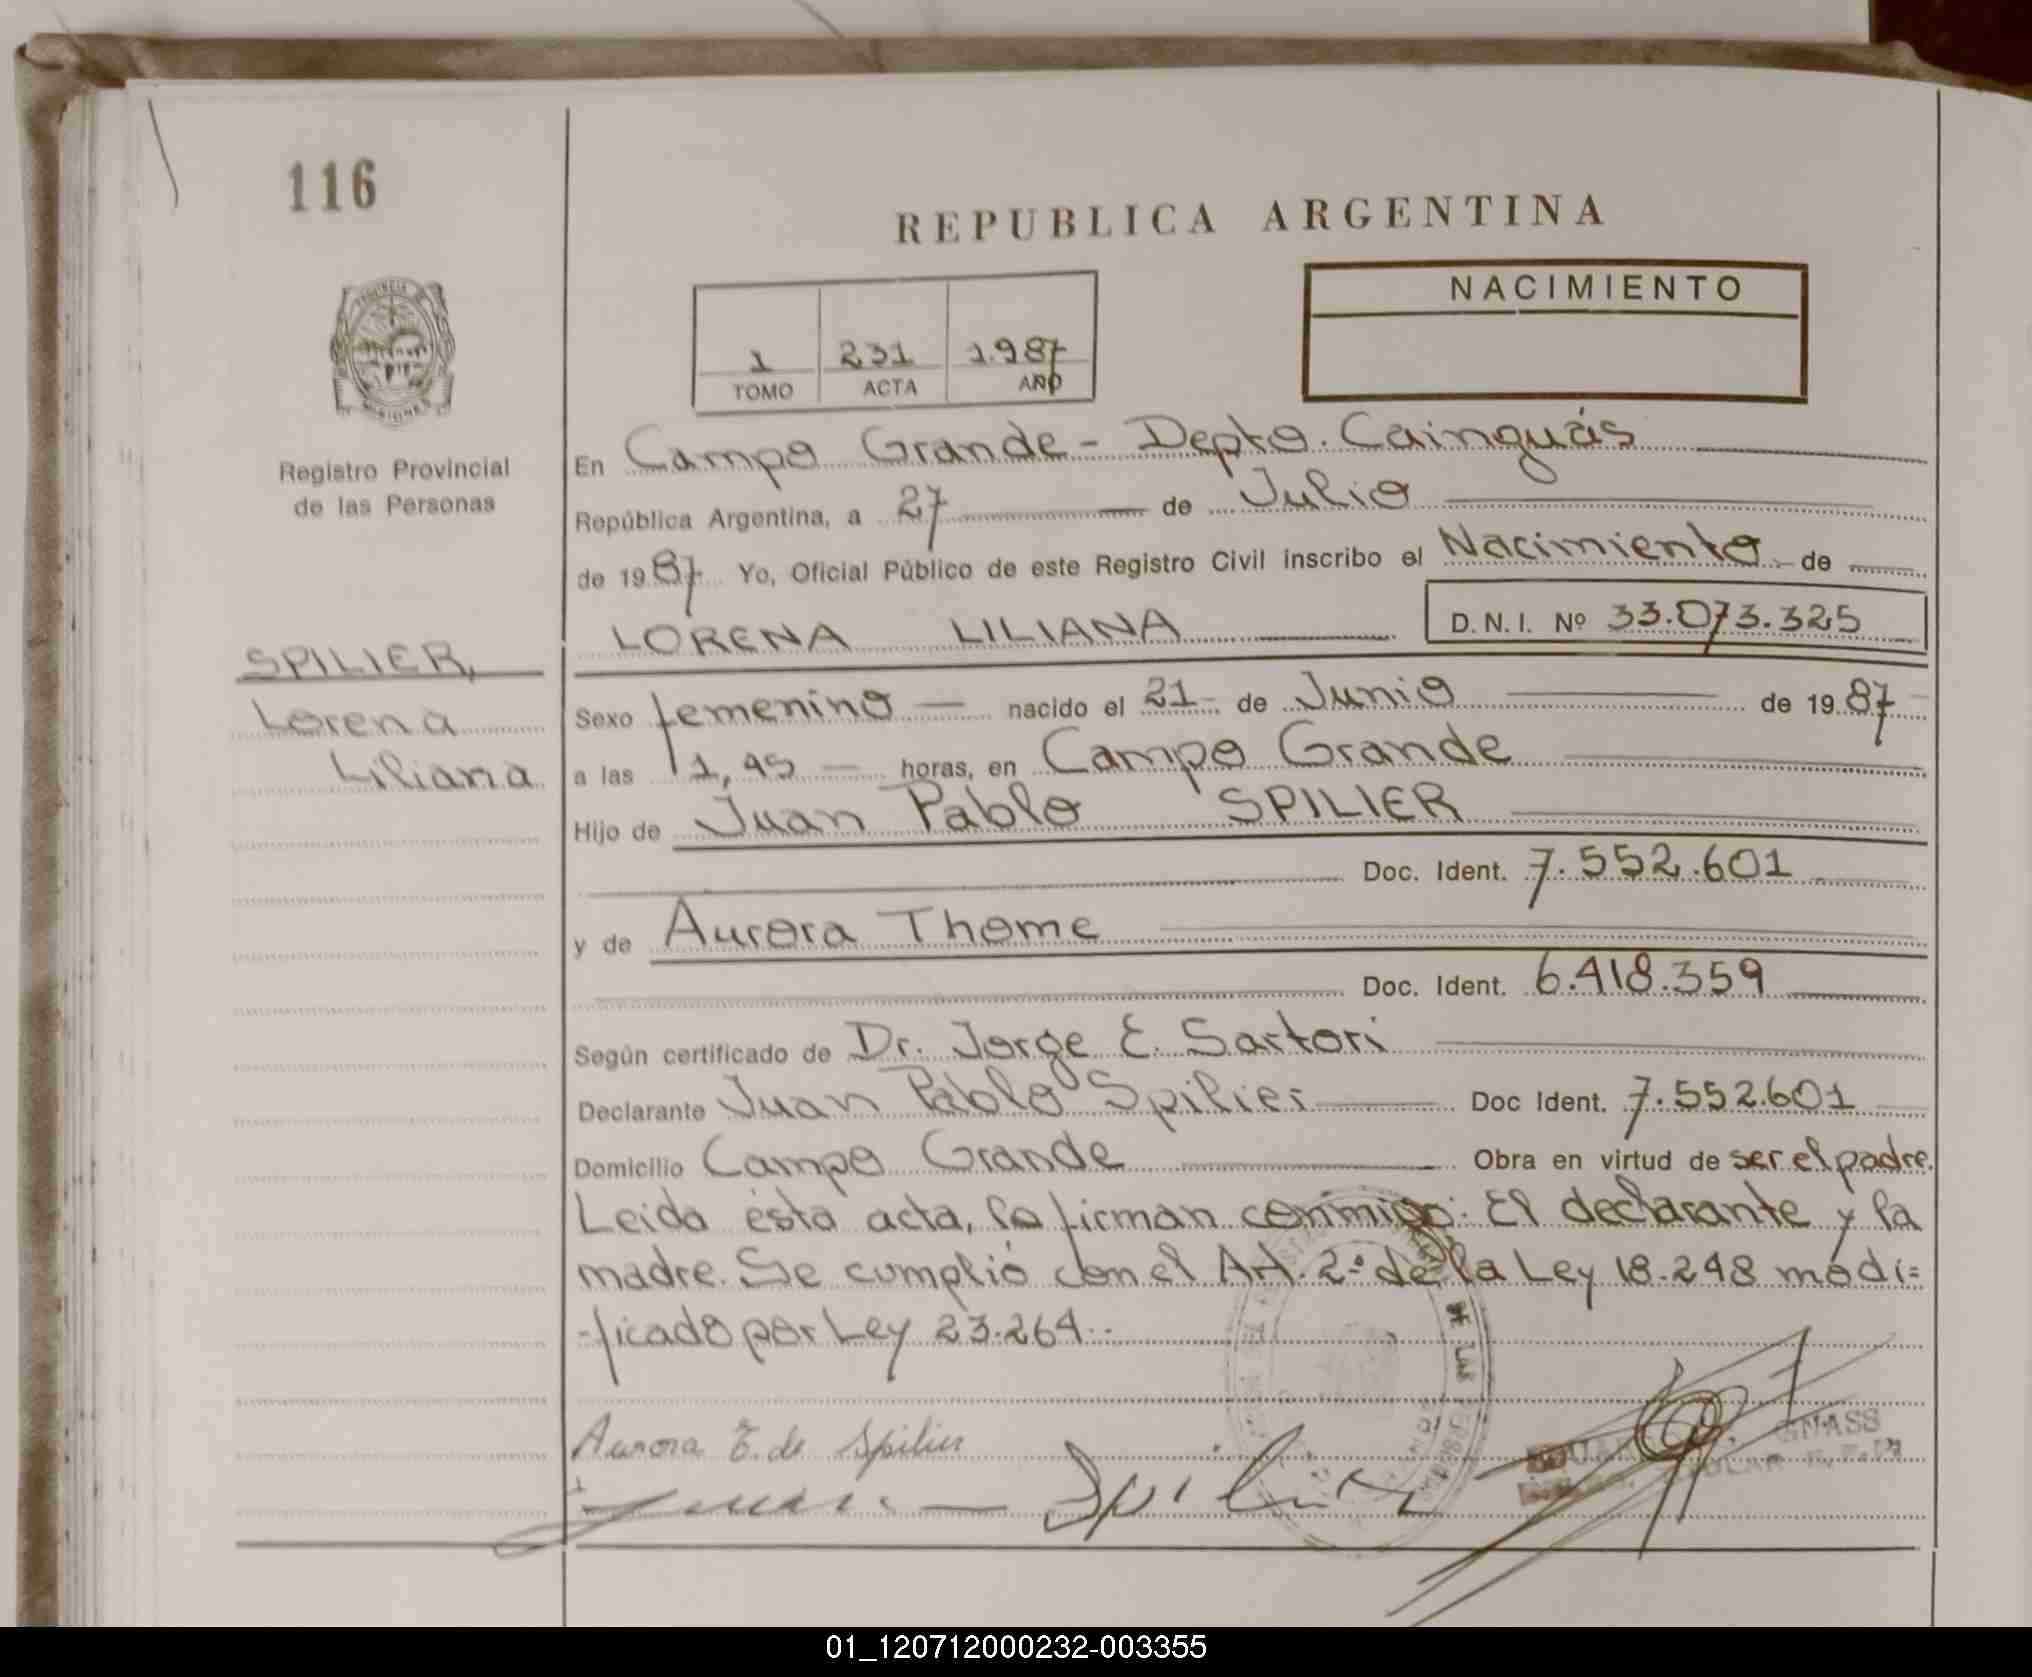 116
REPUBLICA ARGENTINA
NACIMIENTO
1 231 1.987
TOMO ACTA AÑO
PROVINCIA DE
MISIONES
Registro Provincial
de las Personas
SPILIER,
Lorena
Liliana
En Campo Grande - Depto. Cainguás
República Argentina, a 27 de Julio
de 1987 Yo, Oficial Público de este Registro Civil inscribo el Nacimiento de
LORENA LILIANA D.N.I. Nº 33.073.325
Sexo femenino — nacido el 21- de Junio de 1987
a las 11,45 — horas, en Campo Grande
Hijo de Juan Pablo SPILIER
Doc. Ident. 7.552.601
y de Aurora Thome
Doc. Ident. 6.418.359
Según certificado de Dr. Jorge E. Sartori
Declarante Juan Pablo Spilier Doc Ident. 7.552.601
Domicilio Campo Grande Obra en virtud de ser el padre.
Leida ésta acta, la firman conmigo: El declarante y la
madre. Se cumplió con el Art. 2º de la Ley 18.248 modi=
-ficado por Ley 23.264.-
Aurora T. de Spilier
Juan Spilier
GNASS
01_120712000232-003355